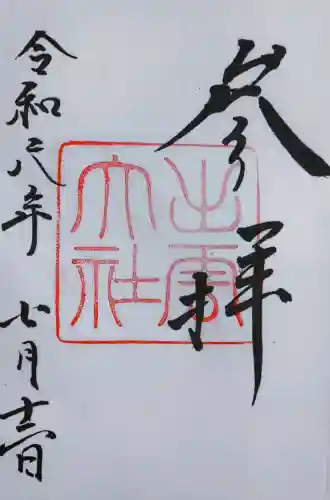 参拝
出雲
大社
令和元年 七月十六日